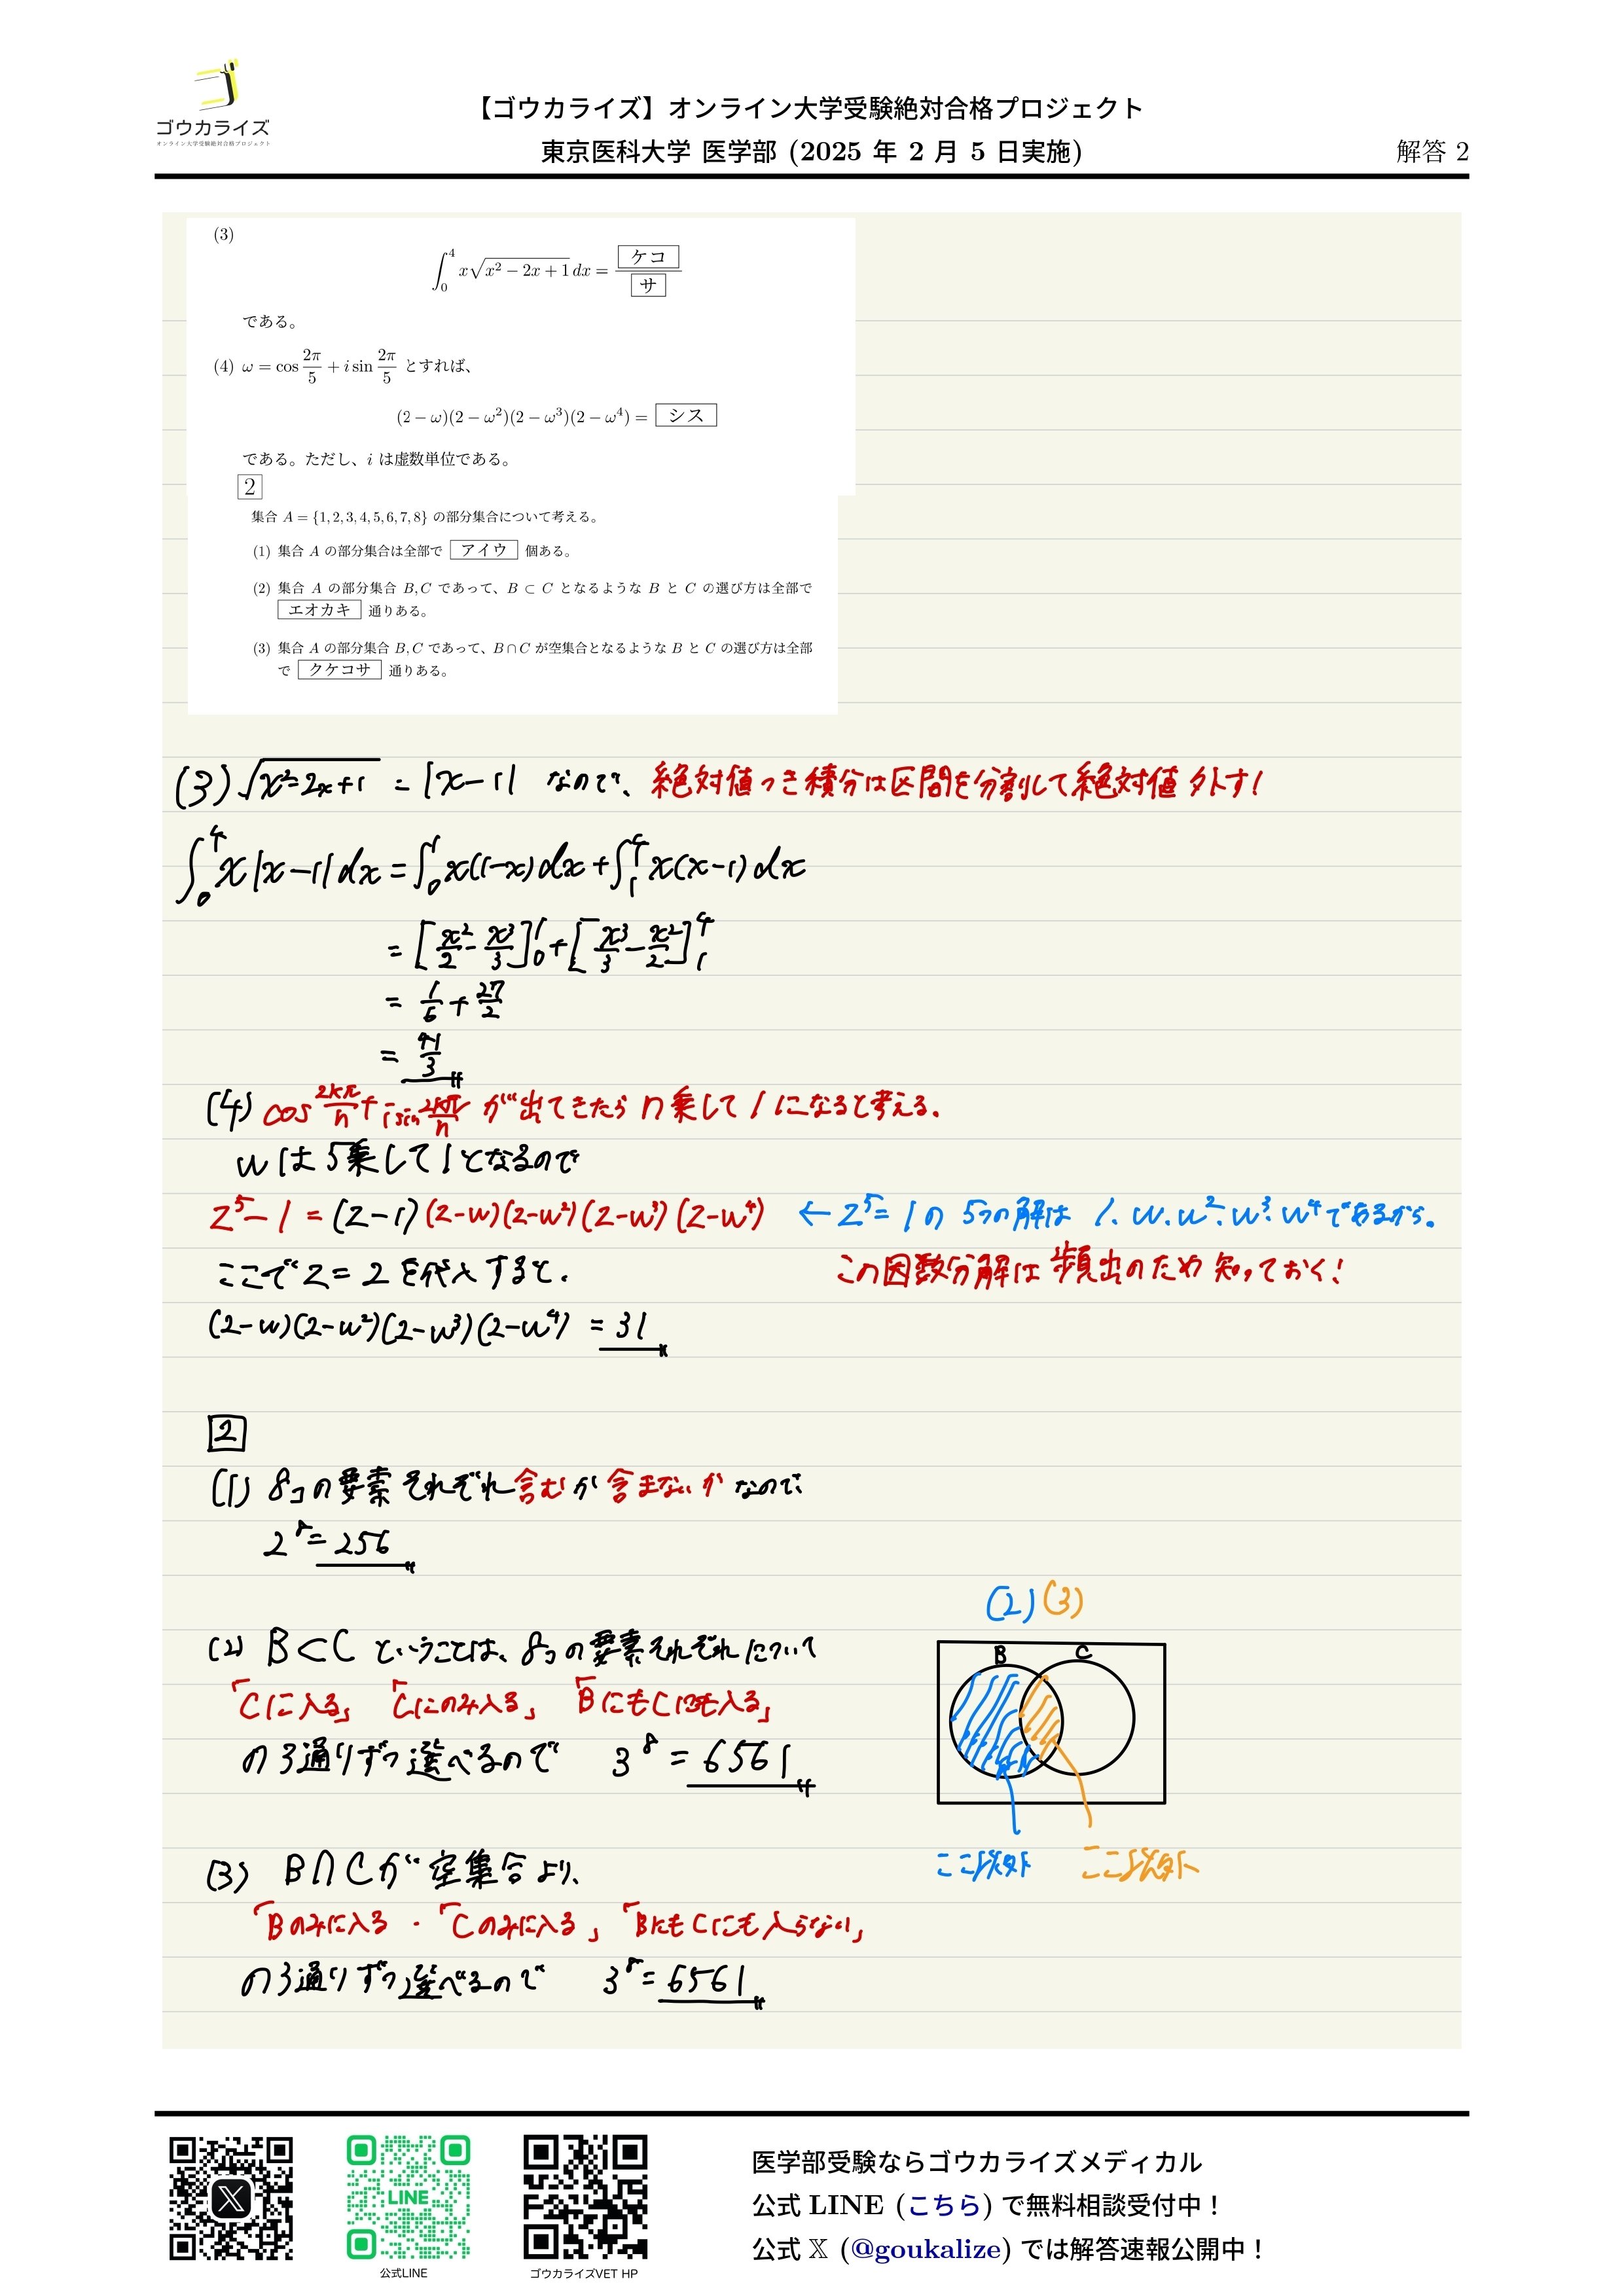 ゴウカライズ
オンライン大学受験絶対合格プロジェクト
【ゴウカライズ】オンライン大学受験絶対合格プロジェクト
東京医科大学 医学部 (2025 年 2 月 5 日実施)
解答 2
(3)
∫₀⁴ x√(x² − 2x + 1) dx = ケコ / サ
である。
(4) ω = cos 2π/5 + i sin 2π/5 とすれば、
(2 − ω)(2 − ω²)(2 − ω³)(2 − ω⁴) = シス
である。ただし、i は虚数単位である。
2
集合 A = {1, 2, 3, 4, 5, 6, 7, 8} の部分集合について考える。
(1) 集合 A の部分集合は全部で アイウ 個ある。
(2) 集合 A の部分集合 B, C であって、B ⊂ C となるような B と C の選び方は全部で
エオカキ 通りある。
(3) 集合 A の部分集合 B, C であって、B ∩ C が空集合となるような B と C の選び方は全部
で クケコサ 通りある。
(3) √(x²−2x+1) = |x−1| なので、絶対値つき積分は区間を分割して絶対値外す!
∫₀⁴ x|x−1|dx = ∫₀¹ x(1−x)dx + ∫₁⁴ x(x−1)dx
= [x²/2 − x³/3]₀¹ + [x³/3 − x²/2]₁⁴
= 1/6 + 27/2
= 41/3
(4) cos 2kπ/n + i sin 2kπ/n が出てきたら n乗して1になると考える.
wは5乗して1となるので
z⁵−1 = (z−1)(z−w)(z−w²)(z−w³)(z−w⁴) ← z⁵=1の 5つの解は 1.w.w².w³.w⁴であるから.
ここでz=2を代入すると. この因数分解は頻出のため知っておく!
(2−w)(2−w²)(2−w³)(2−w⁴) = 31
2
(1) 8コの要素それぞれ含むか含まないかなので、
2⁸=256
(2) (3)
(2) B⊂C ということは、8コの要素それぞれについて
B C
「Cに入る」「Cにのみ入る」「BにもCにも入る」
の3通りずつ選べるので 3⁸=6561
ここ以外 ここ以外
(3) B∩Cが空集合より、
「Bのみに入る・「Cのみに入る」「BにもCにも入らない」
の3通りずつ選べるので 3⁸=6561
LINE
公式LINE
ゴウカライズVET HP
医学部受験ならゴウカライズメディカル
公式 LINE (こちら) で無料相談受付中！
公式 𝕏 (@goukalize) では解答速報公開中！